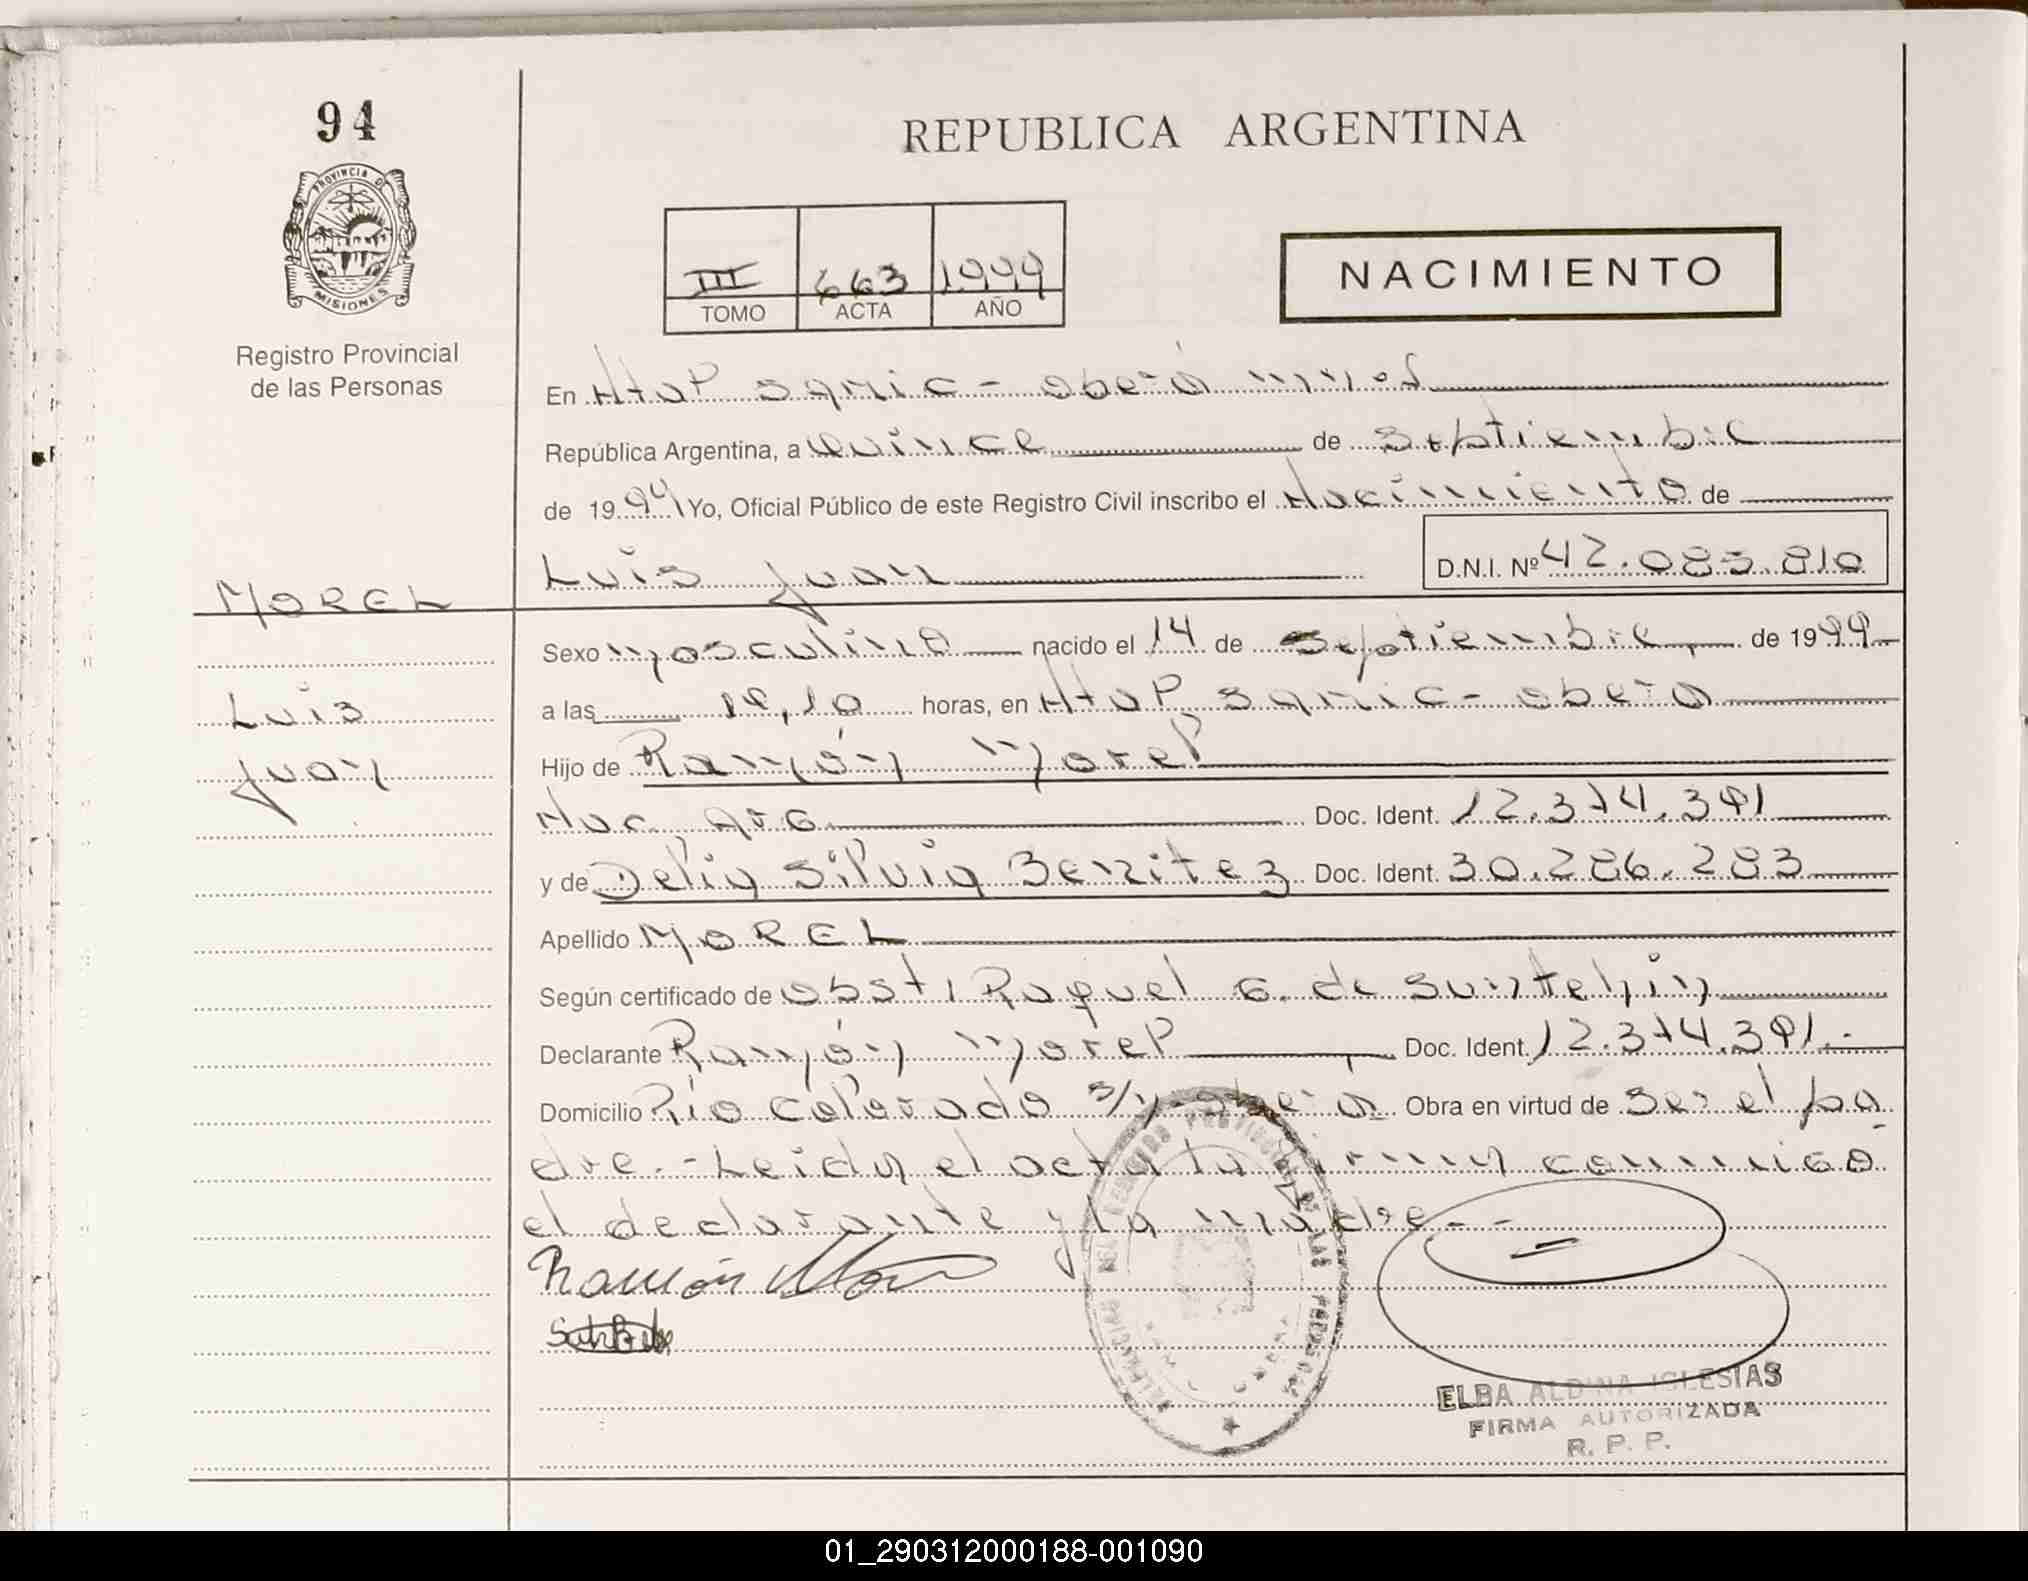 94
PROVINCIA DE
MISIONES
Registro Provincial
de las Personas
REPUBLICA ARGENTINA
III 663 1999
TOMO ACTA AÑO
NACIMIENTO
En Htal Samic - oberá mnes
República Argentina, a Quince de Septiembre
de 1999 Yo, Oficial Público de este Registro Civil inscribo el Nacimiento de
Luis Juan D.N.I. Nº 42.083.810
MOREL
Luis
Juan
Sexo masculino nacido el 14 de Septiembre de 1999
a las 19,10 horas, en Htal Samic - obera
Hijo de Ramón Morel
Nac. Arg Doc. Ident. 12.374.391
y de Delia Silvia Benitez Doc. Ident. 30.286.283
Apellido MOREL
Según certificado de obst, Raquel G. de
Declarante Ramón Morel Doc. Ident. 12.374.391.-
Domicilio Río Colorado s/n - obera Obra en virtud de Ser el pa
dre.- Leida el acta la firman conmigo
el declarante y la madre.-
Ramón Mor
REGISTRO PROVINCIAL DE LAS PERSONAS
ELBA ALDINA IGLESIAS
FIRMA AUTORIZADA
R. P. P.
01_290312000188-001090